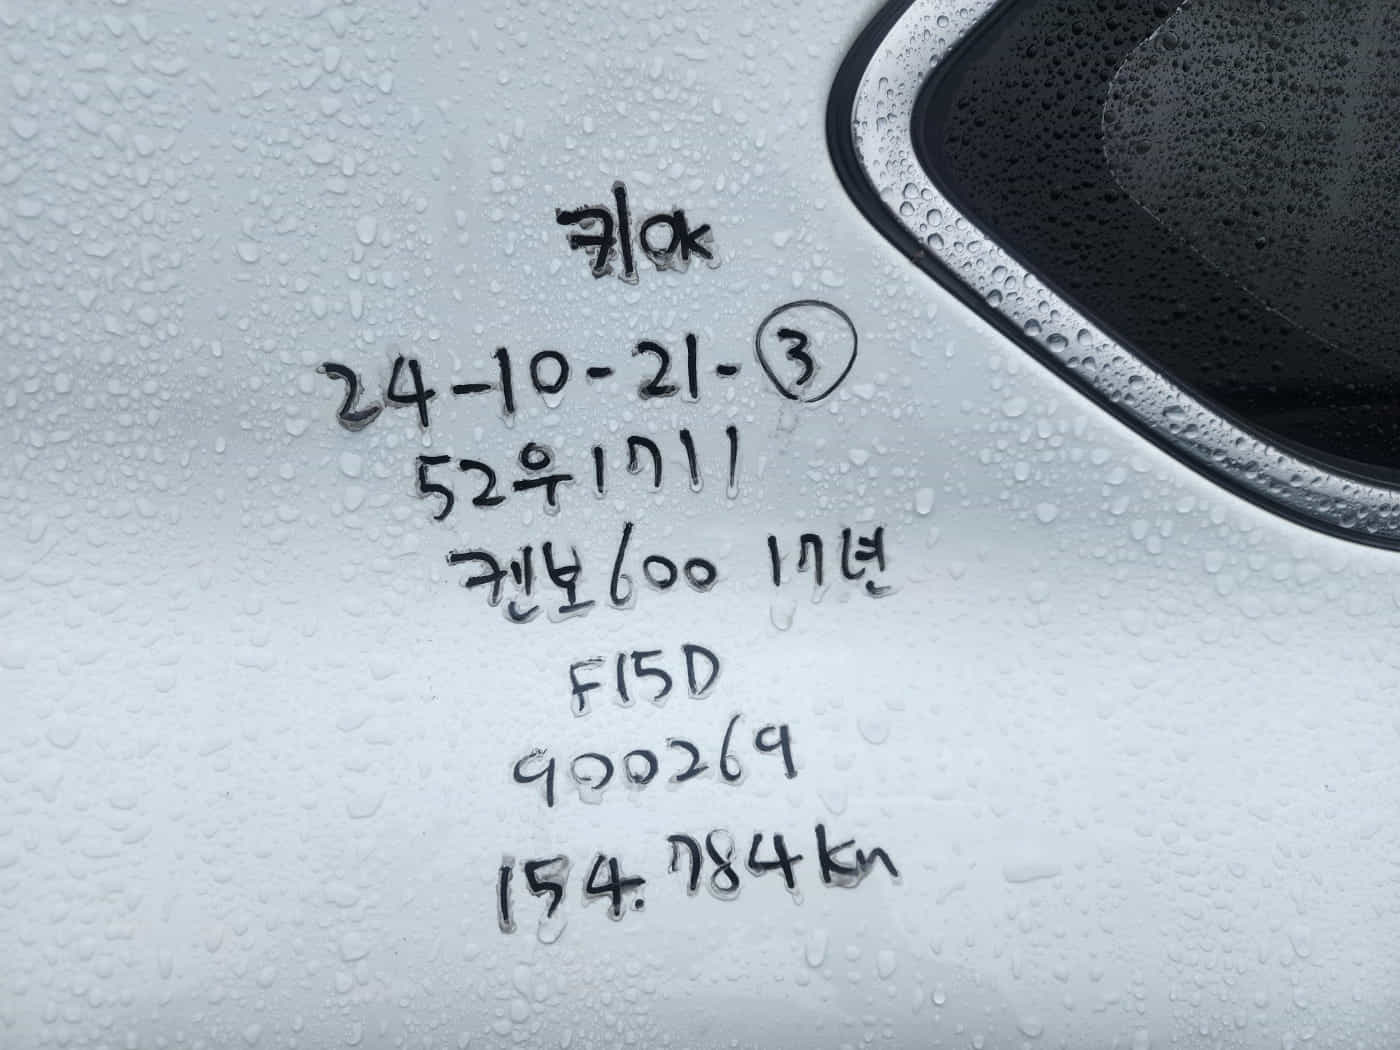 키OK
24-10-21-③
52우1711
켄보600 17년
F15D
900269
154.784km